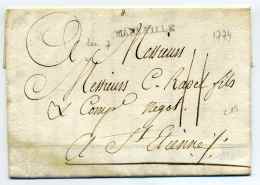 MARSEILLE 1774
A Messieurs
Messieurs C. Ravel fils
& Comp^e Negot^s
A S^t Etienne